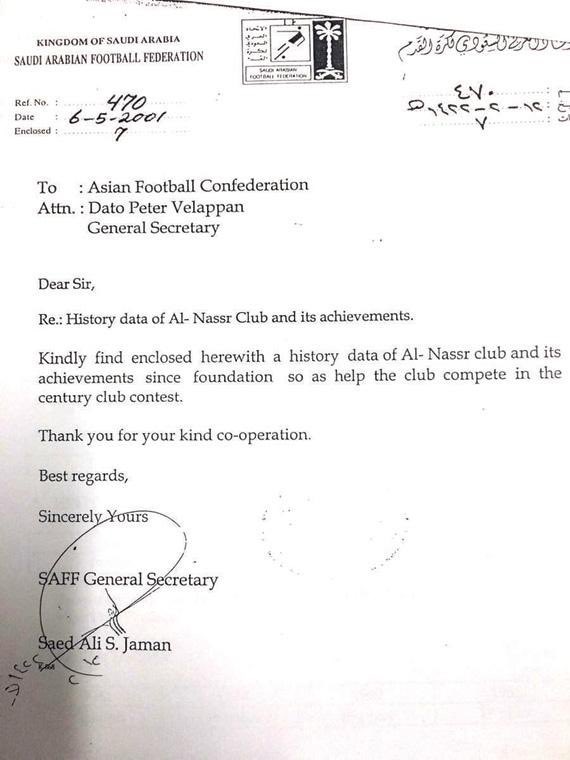 KINGDOM OF SAUDI ARABIA
SAUDI ARABIAN FOOTBALL FEDERATION
الاتحاد
العربي
السعودي
لكرة
القدم
SAUDI ARABIAN
FOOTBALL FEDERATION
العربي السعودي لكرة القدم
Ref. No. : 470
Date : 6-5-2001
Enclosed : 7
٤٧٠
١٢-٢-١٤٢٢هـ
٧
To : Asian Football Confederation
Attn. : Dato Peter Velappan
General Secretary
Dear Sir,
Re.: History data of Al- Nassr Club and its achievements.
Kindly find enclosed herewith a history data of Al- Nassr club and its
achievements since foundation so as help the club compete in the
century club contest.
Thank you for your kind co-operation.
Best regards,
Sincerely Yours
SAFF General Secretary
Saed Ali S. Jaman